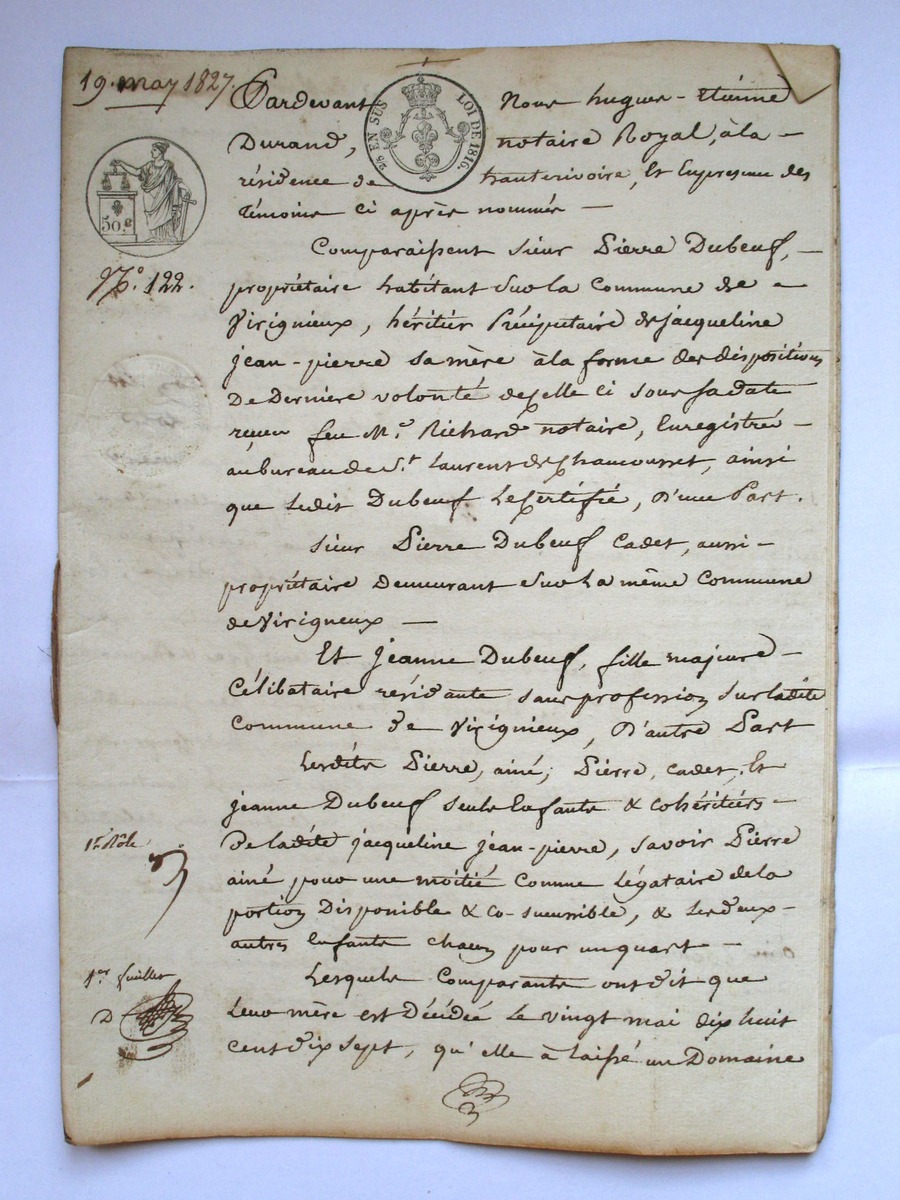 19. may 1827.
Pardevant Nous hugues-étienne
25 EN SUS LOI DE 1816.
Durand, notaire Royal, à la –
résidence de hauterivoire, Et En presence des
témoins ci après nommés –
50 c
Comparaissent sieur Pierre Dubeuf, –
N.º 122.
propriétaire habitant sur la Commune de –
Virignieux, héritier Préciputaire de jacqueline
jean-pierre sa mère à la forme des dispositions
De Dernière volonté de celle ci sous sa date
reçu feu M.e Richard notaire, Enregistré –
au bureau de S.t Laurent de Chamousset, ainsi
que ledit Dubeuf le Certifié, D'une Part.
sieur Pierre Dubeuf Cadet, aussi –
propriétaire Demeurant sur La même Commune
de Virigneux –
Et Jeanne Dubeuf, fille majeure –
Célibataire résidante sans profession sur ladite
Commune de Virignieux, D'autre Part
Lesdits Pierre, ainé, Pierre, cadet, Et
jeanne Dubeuf seuls Enfants & cohéritiers –
1er Rôle
De ladite jacqueline jean-pierre, savoir Pierre
ainé pour une moitié Comme Légataire de la
portion Disponible & Co-successible, & Les deux –
autres Enfants chacun pour un quart –
1er feuillet
Lesquels Comparants ont dit que
D
Leur mère est Décédée Le vingt mai dix huit
cent dix sept, qu'elle à laissé un Domaine